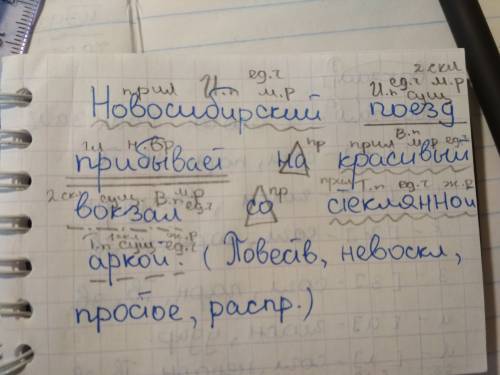 2 скл
прил И.п ед.ч м.р И.п ед.ч сущ м.р
Новосибирский поезд
гл н.вр пр прил В.п м.р ед.ч
прибывает на красивый
2 скл сущ. В.п м.р ед.ч пр прил Т.п ед.ч ж.р
вокзал со стеклянной
1 скл. Т.п сущ ед.ч ж.р
аркой. (Повеств, невоскл,
простое, распр.)